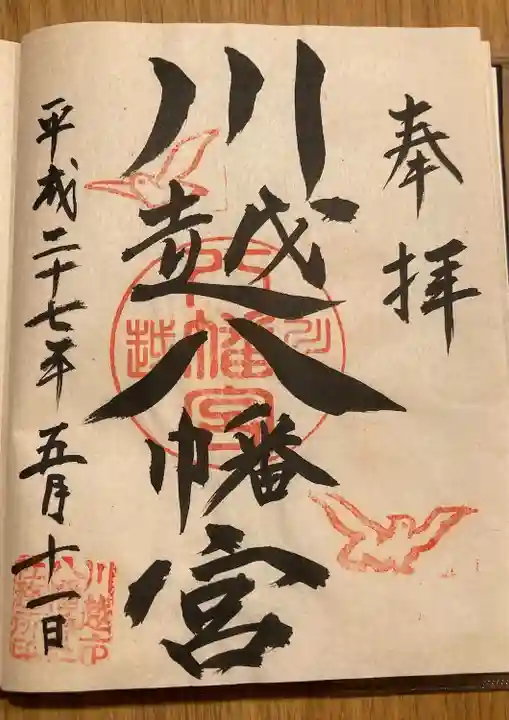 奉拝
川越八幡宮
平成二十七年五月十一日
川越
八幡宮
川越市